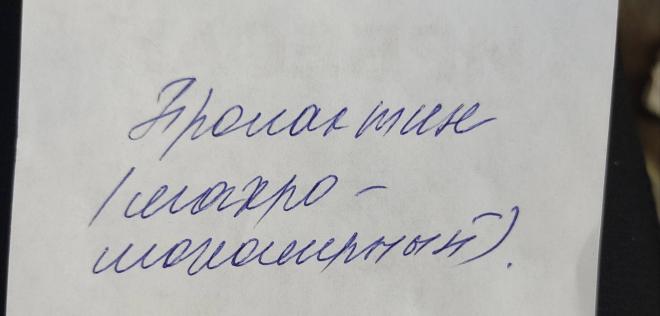 Пролактин
(макро-
мономерный).